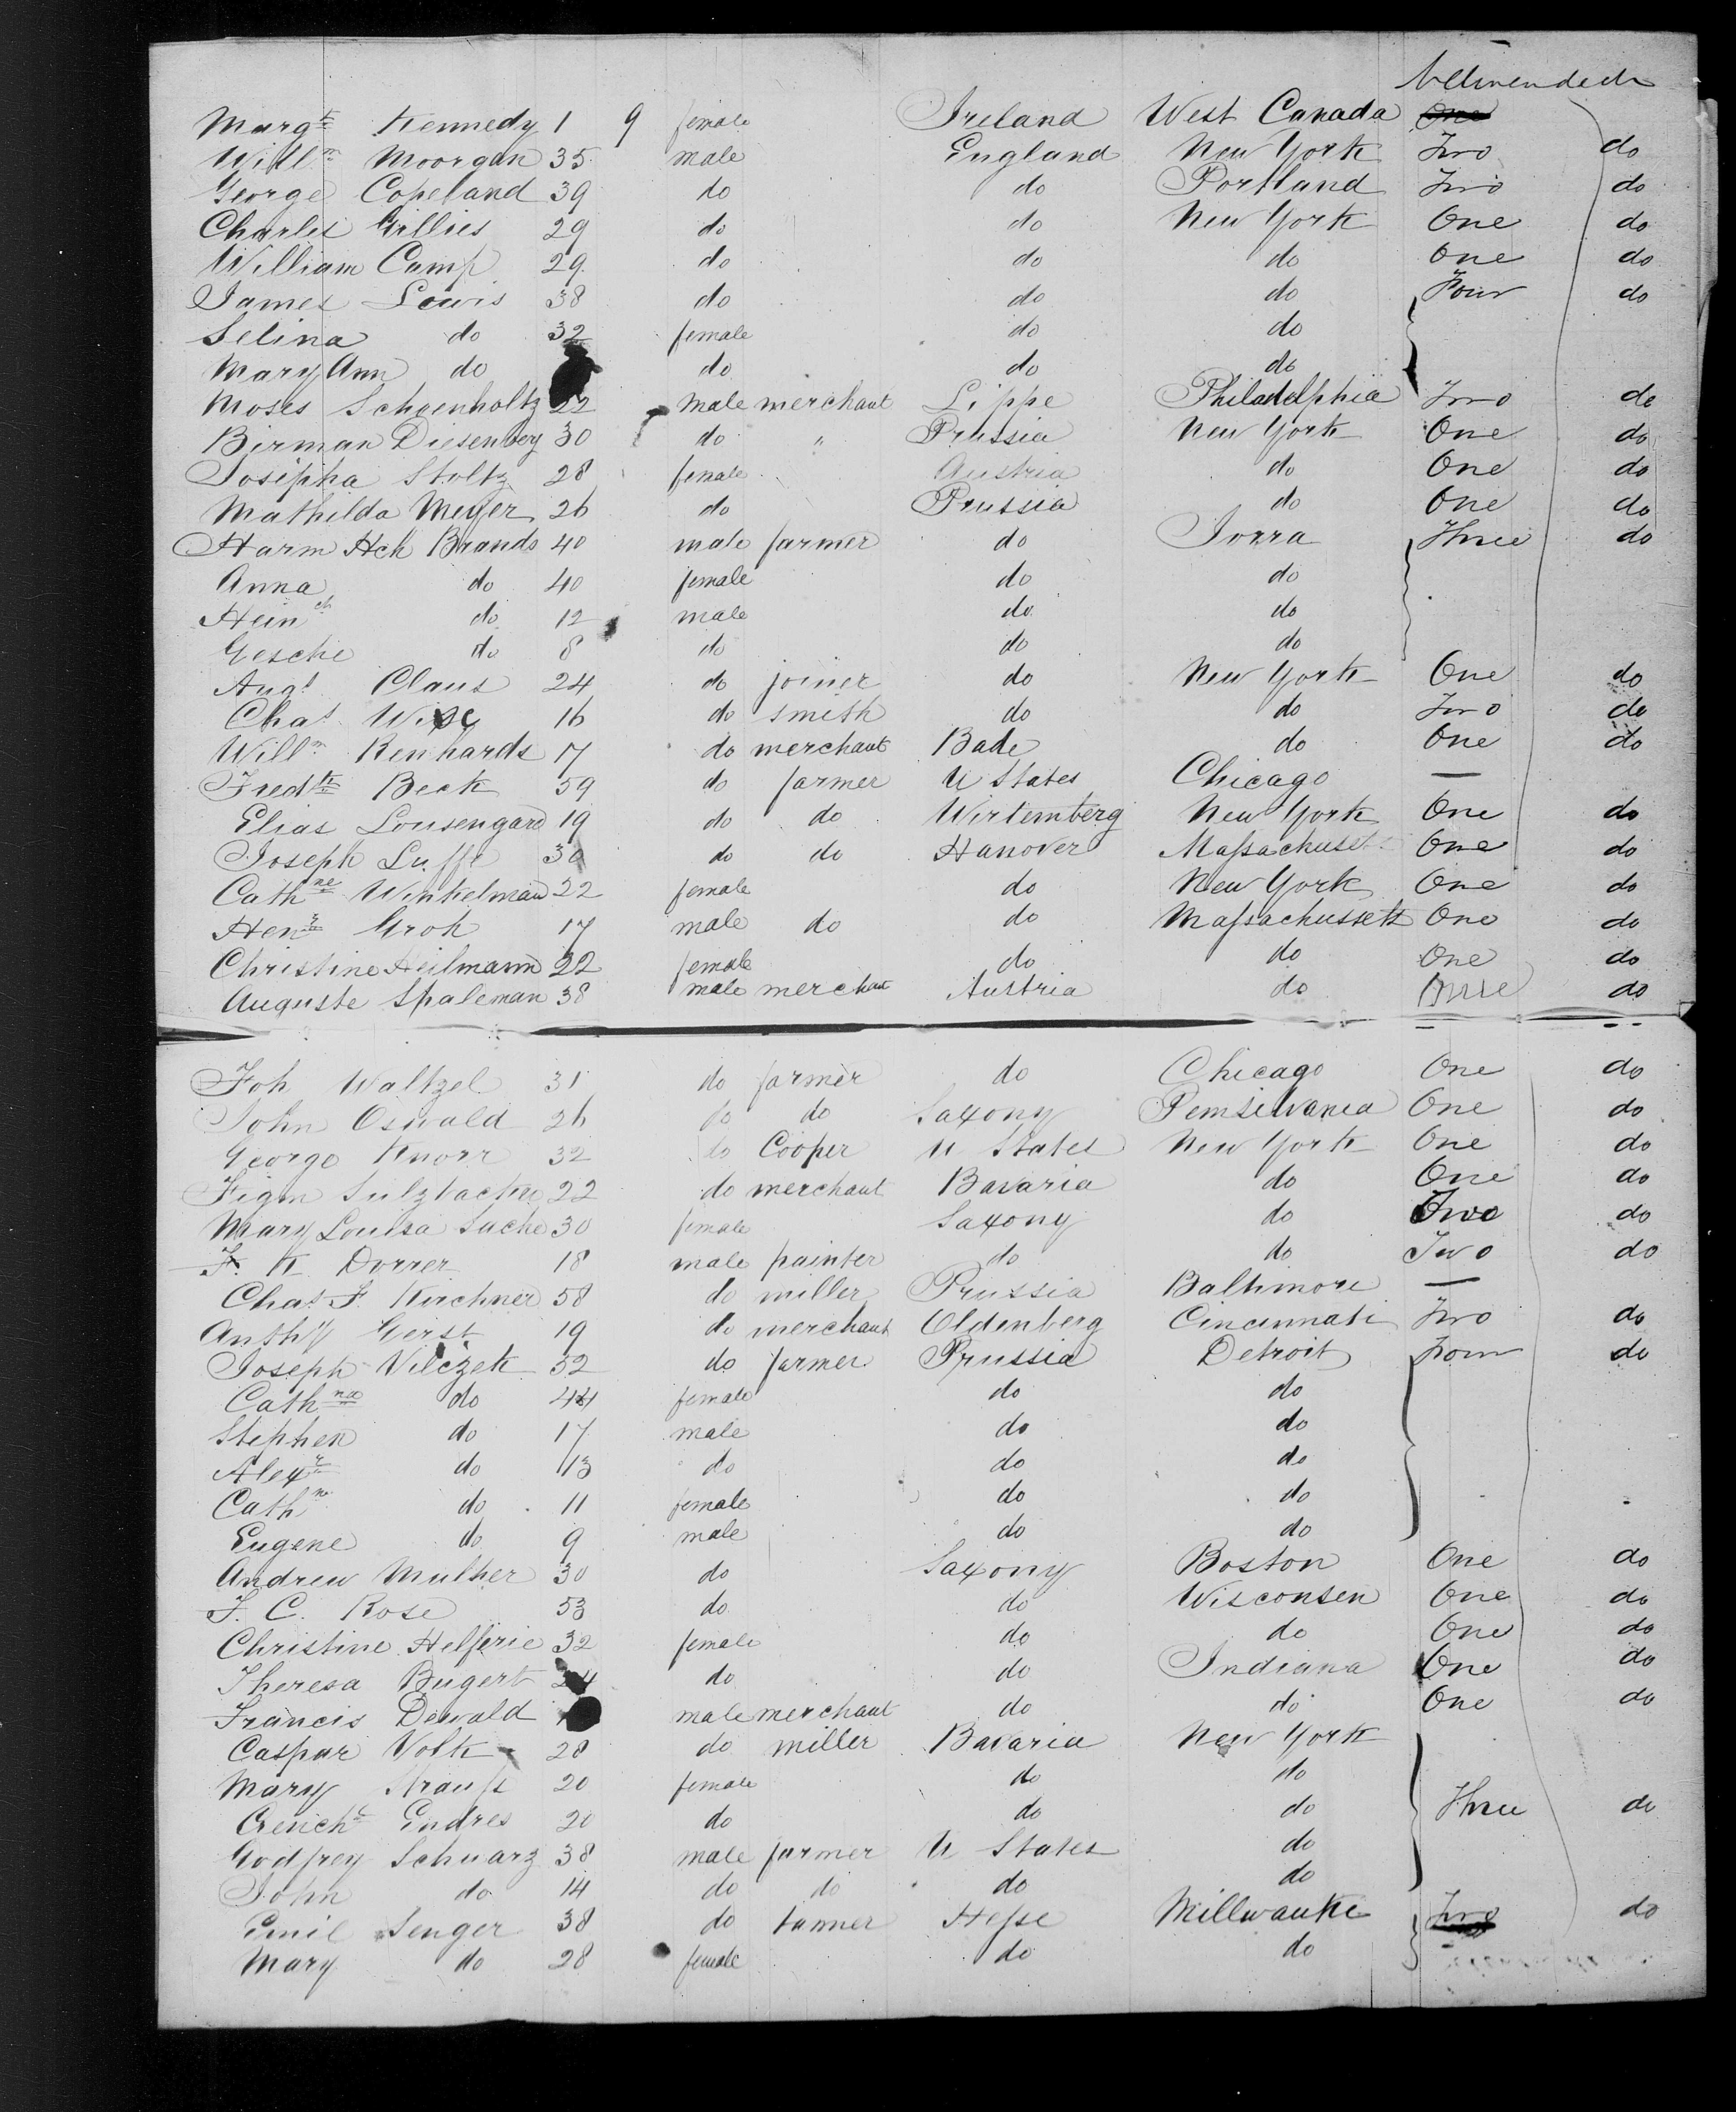 Margt Kennedy 1 9 female Ireland West Canada One
Willm Moorgan 35 male England New York Two do
George Copeland 39 do do Portland Two do
Charles Gillies 29 do do New York One do
William Camp 29 do do do One do
James Lewis 38 do do do Four do
Selina do 32 female do do
Mary Ann do do do do
Moses Schoenholtz 22 male merchant Lippe Philadelphia Two do
Birman Diesenberg 30 do " Prussia New York One do
Josepha Stoltz 28 female Austria do One do
Mathilda Meyer 26 do Prussia do One do
Harm Hch Brands 40 male farmer do Three do
Anna do 40 female do do
Heinch do 12 male do do
Gesche do 8 do do do
Augt Claus 24 do joiner do New York One do
Chas 16 do smith do do Two do
Willm Renhards 17 do merchant Bade do One do
Fredk Beck 59 do farmer U States Chicago —
Elias Lousengard 19 do do Wirtemberg New York One do
Joseph Luffe 30 do do Hanover Massachuset One do
Cathne Winkelman 22 female do New York One do
Henr Groh 17 male do do Massachussetts One do
Christine Heilmann 22 female do do One do
Auguste Spaleman 38 male merchant Austria do do
Joh Waltzel 31 do farmer do Chicago One do
John Oswald 26 do do Saxony Pemsilvania One do
George Knorr 32 do Cooper U States New York One do
Figm Sulzbacher 22 do merchant Bavaria do One do
Mary Louisa Sache 30 female Saxony do Two do
F. K Dorrer 18 male painter do do Two do
Chas F. Kirchner 58 do miller Prussia Baltimore —
Anthy Gerst 19 do merchant Oldenberg Cincinnati Two do
Joseph Vilczek 52 do farmer Prussia Detroit Four do
Cathna do 44 female do do
Stephen do 17 male do do
Alexr do 13 do do do
Cathne do 11 female do do
Eugene do 9 male do do
Andrew Mulher 30 do Saxony Boston One do
F. C. Rose 53 do do Wisconsen One do
Christine Helferie 32 female do do One do
Theresa Bugert 24 do do Indiana One do
Francis Dewald male merchant do do One do
Caspar Volk 28 do miller Bavaria New York
Mary Strauss 20 female do do
Endres 20 do do do Three do
Godfrey Schwarz 38 male farmer U States do
John do 14 do do do do
Emil Senger 38 do tanner Hesse Millwaukie Two do
Mary do 28 female do do